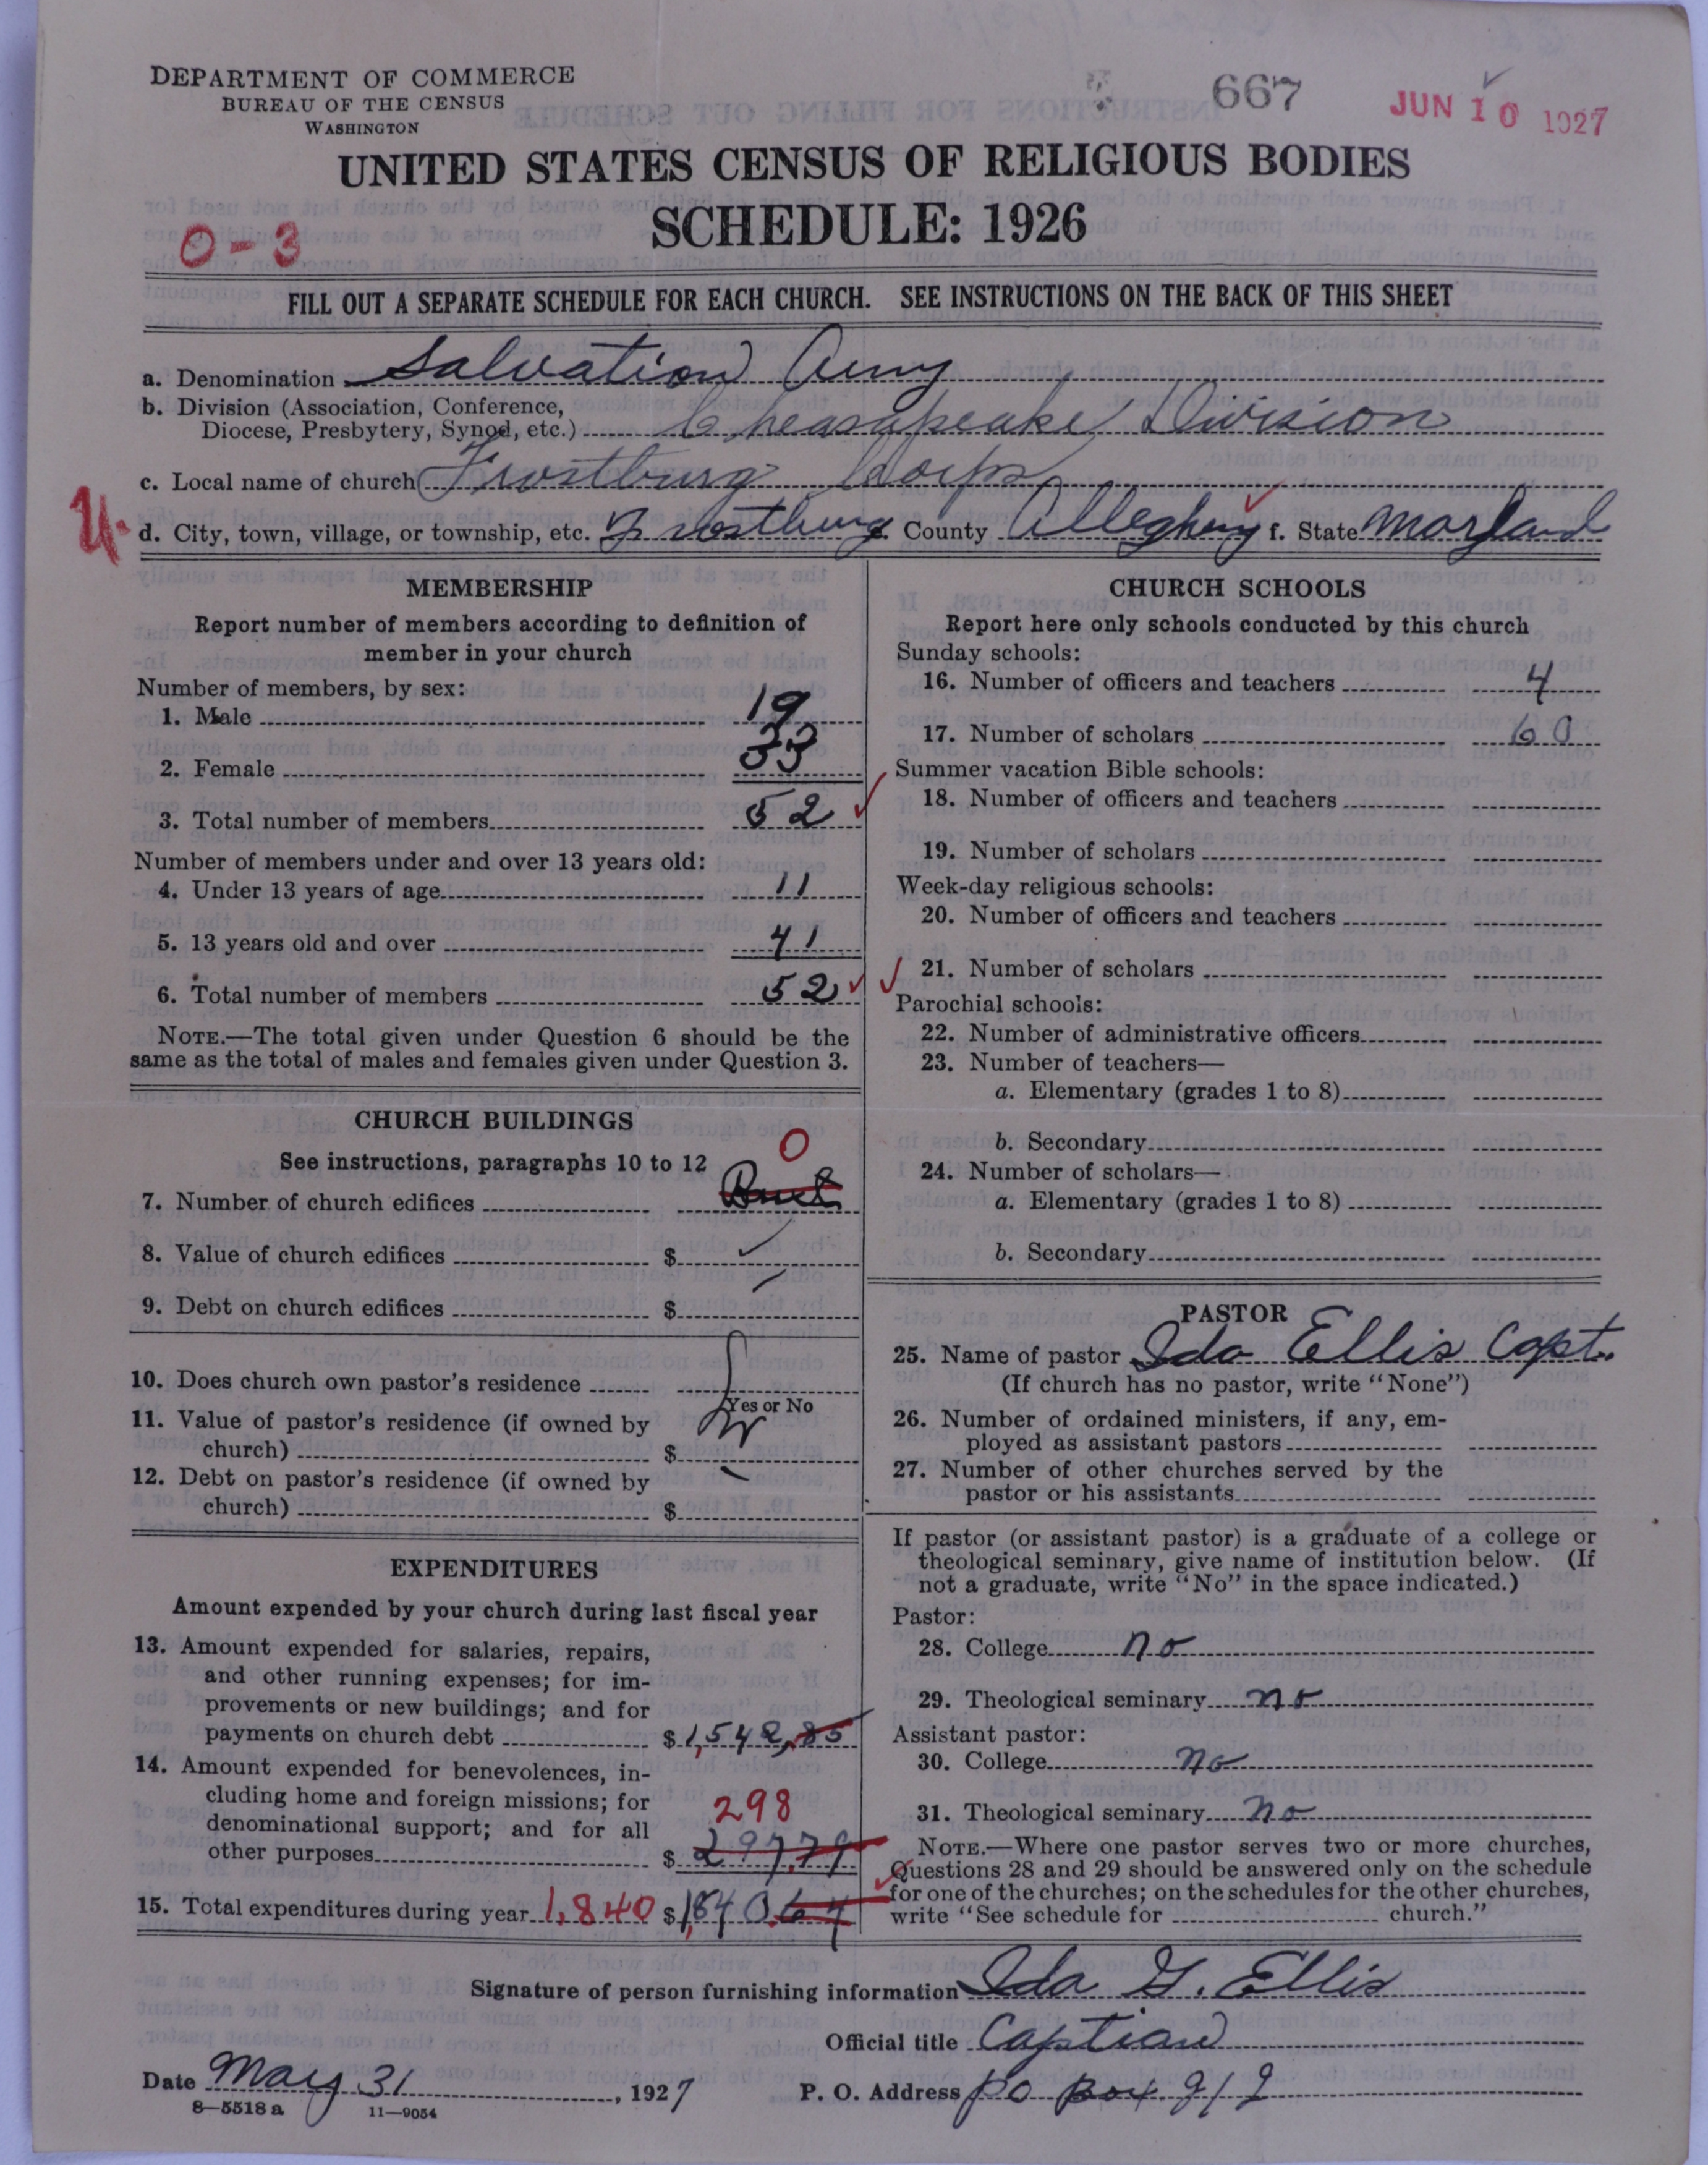 DEPARTMENT OF COMMERCE
BUREAU OF THE CENSUS
WASHINGTON
667
JUN 10 1927
UNITED STATES CENSUS OF RELIGIOUS BODIES
SCHEDULE: 1926
0-3
FILL OUT A SEPARATE SCHEDULE FOR EACH CHURCH. SEE INSTRUCTIONS ON THE BACK OF THIS SHEET
a. Denomination Salvation Army
b. Division (Association, Conference,
Diocese, Presbytery, Synod, etc.) Cheasapeake Division
c. Local name of church Frostburg Corps
d. City, town, village, or township, etc. Frostburg e. County Alleghny f. State Maryland
MEMBERSHIP
Report number of members according to definition of
member in your church
Number of members, by sex:
1. Male 19
2. Female 33
3. Total number of members 52
Number of members under and over 13 years old:
4. Under 13 years of age 11
5. 13 years old and over 41
6. Total number of members 52
NOTE.—The total given under Question 6 should be the
same as the total of males and females given under Question 3.
CHURCH BUILDINGS
See instructions, paragraphs 10 to 12
0
7. Number of church edifices
8. Value of church edifices $
9. Debt on church edifices $
10. Does church own pastor's residence
Yes or No
11. Value of pastor's residence (if owned by
church) $
12. Debt on pastor's residence (if owned by
church) $
EXPENDITURES
Amount expended by your church during last fiscal year
13. Amount expended for salaries, repairs,
and other running expenses; for im-
provements or new buildings; and for
payments on church debt $ 1,542,85
14. Amount expended for benevolences, in-
cluding home and foreign missions; for
denominational support; and for all
298
other purposes $ 297.79
15. Total expenditures during year 1,840 $ 1,840.64
CHURCH SCHOOLS
Report here only schools conducted by this church
Sunday schools:
16. Number of officers and teachers 4
17. Number of scholars 60
Summer vacation Bible schools:
18. Number of officers and teachers
19. Number of scholars
Week-day religious schools:
20. Number of officers and teachers
21. Number of scholars
Parochial schools:
22. Number of administrative officers
23. Number of teachers—
a. Elementary (grades 1 to 8)
b. Secondary
24. Number of scholars—
a. Elementary (grades 1 to 8)
b. Secondary
PASTOR
25. Name of pastor Ida Ellis Capt.
(If church has no pastor, write "None")
26. Number of ordained ministers, if any, em-
ployed as assistant pastors
27. Number of other churches served by the
pastor or his assistants
If pastor (or assistant pastor) is a graduate of a college or
theological seminary, give name of institution below. (If
not a graduate, write "No" in the space indicated.)
Pastor:
28. College no
29. Theological seminary no
Assistant pastor:
30. College no
31. Theological seminary no
NOTE.—Where one pastor serves two or more churches,
Questions 28 and 29 should be answered only on the schedule
for one of the churches; on the schedules for the other churches,
write "See schedule for church."
Signature of person furnishing information Ida G. Ellis
Official title Captian
Date May 31, 1927 P. O. Address PO Box 212
8—5518 a 11—9054